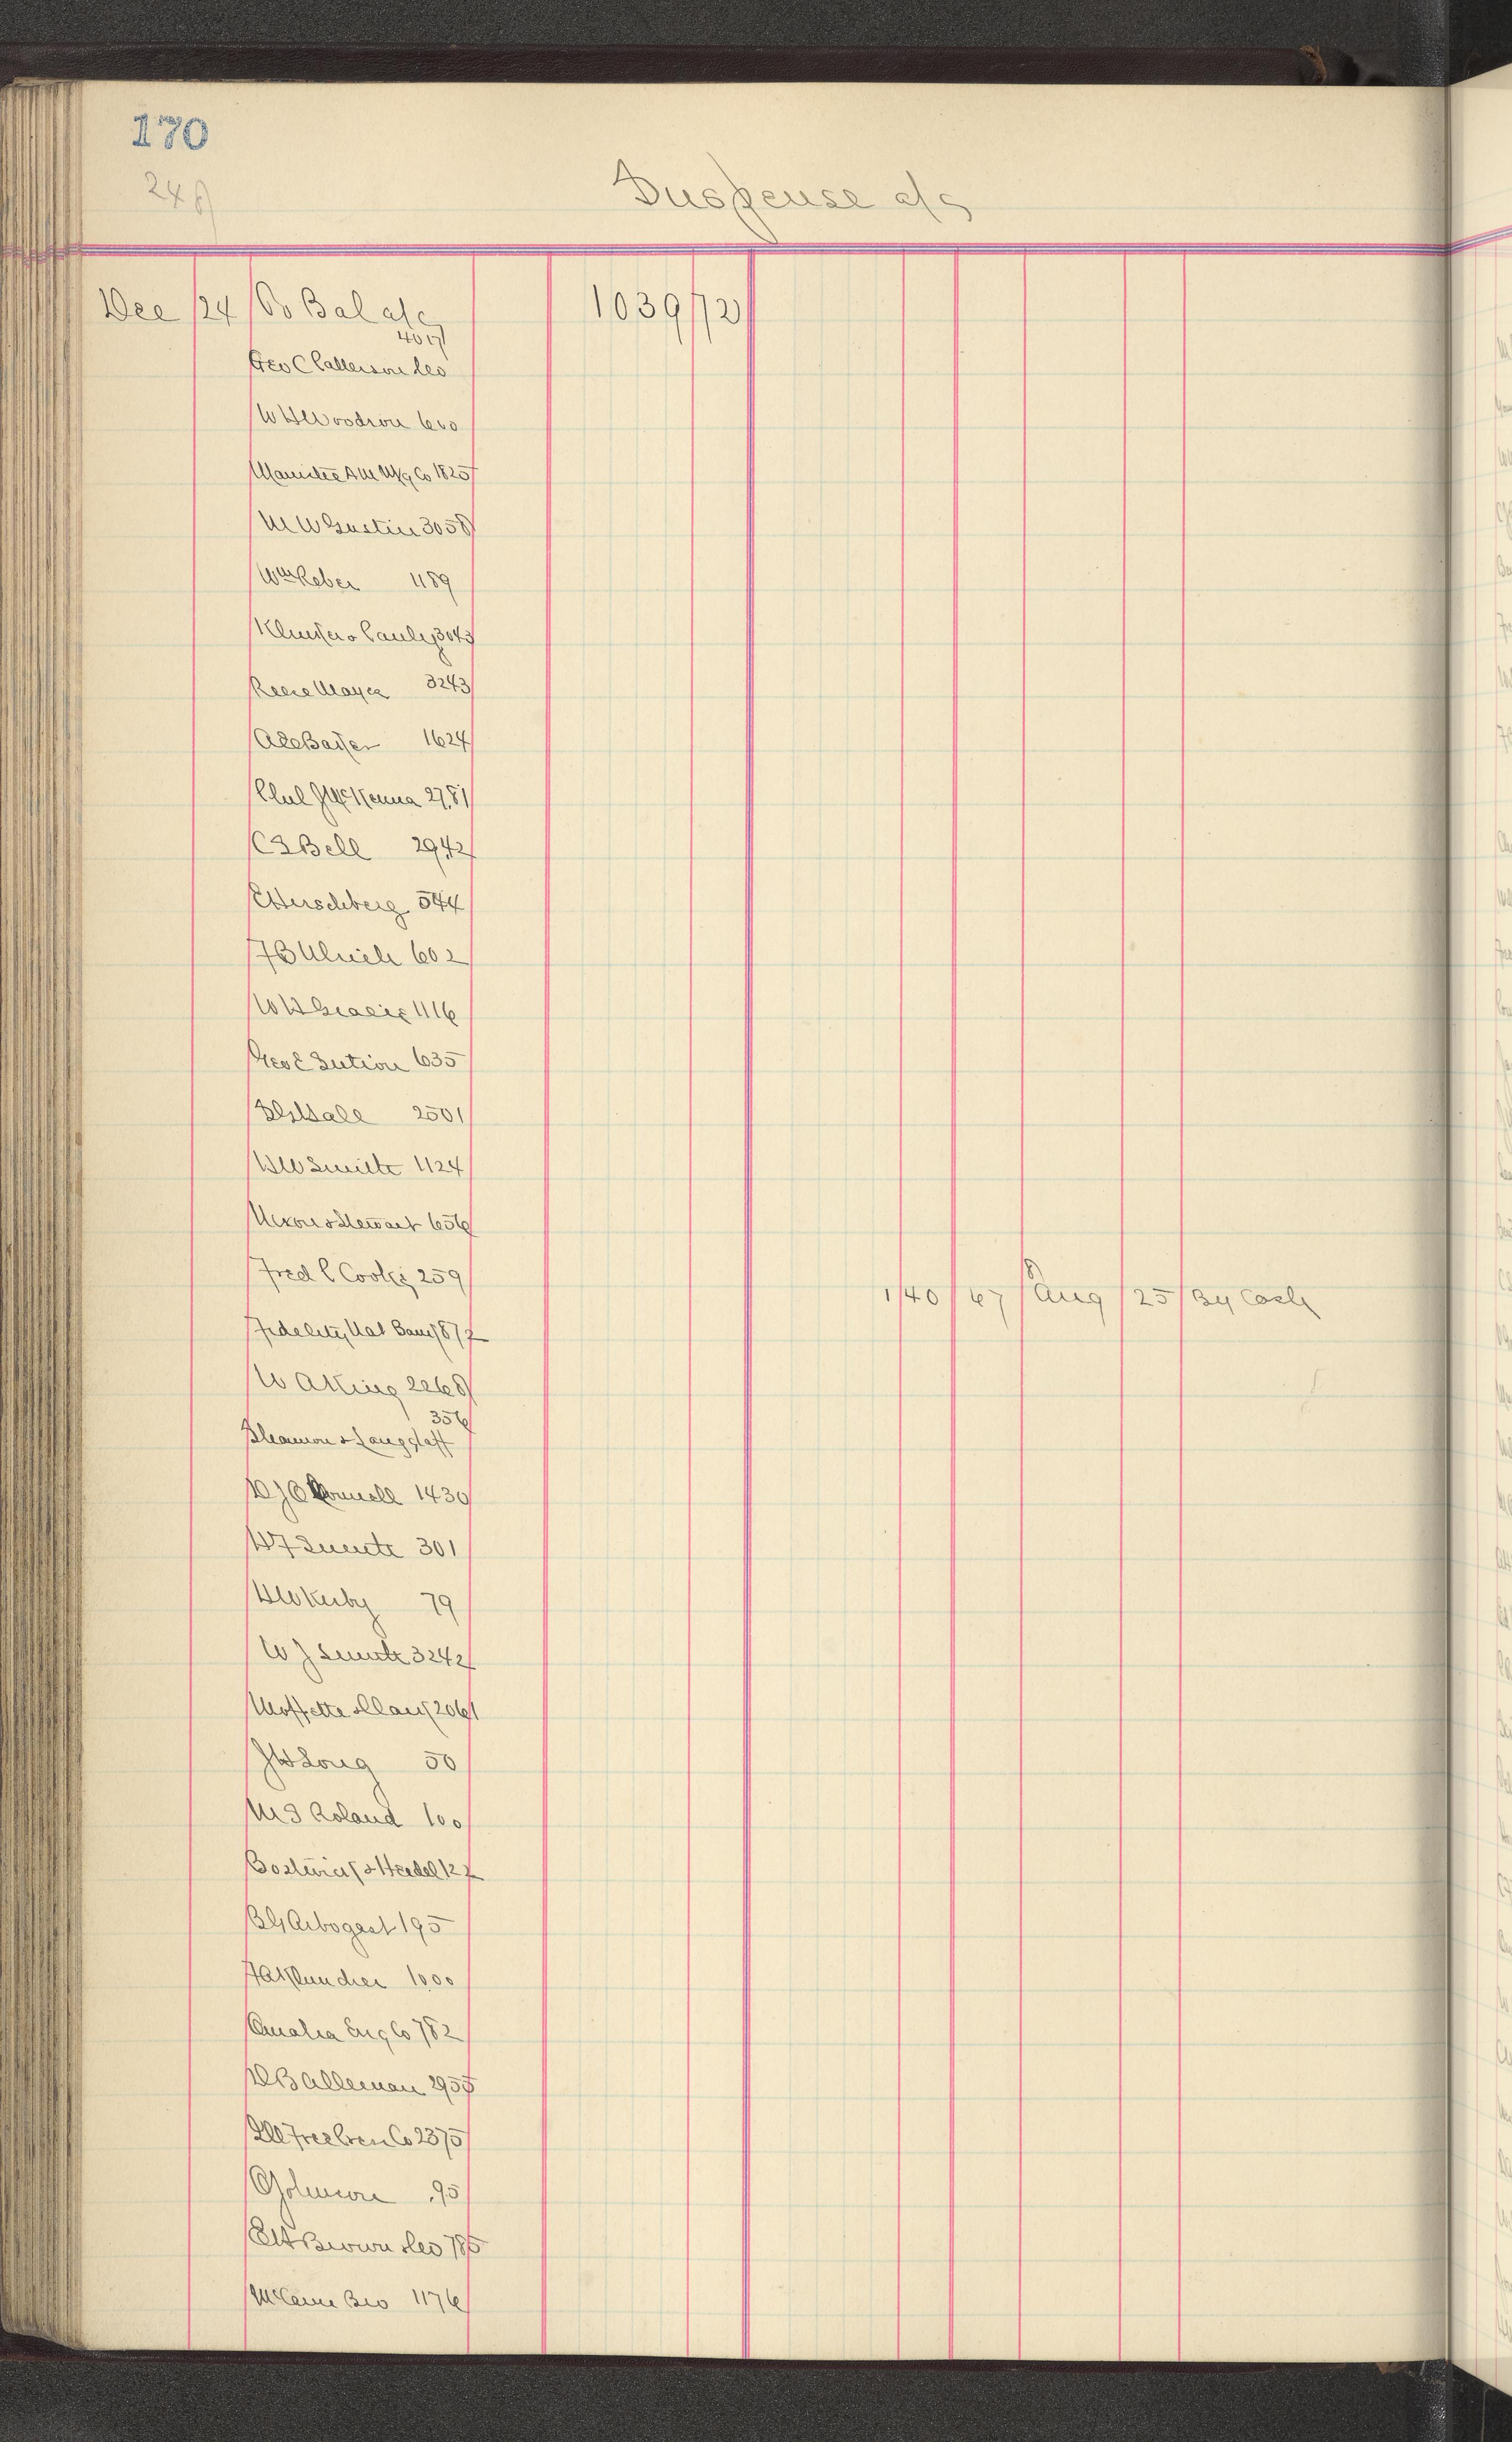 170
248
Suspense a/c
Dec 24 To Bal a/c 1039 72
4017
Geo C Patterson &Co
W H Woodrow 600
Manistee A M Mfg Co 1825
M W Gustin 3058
Wm Reber 1189
Pauly 3043
Reese Mayer 3243
1624
McKenna 2781
C S Bell 2942
E Herschberg 544
F B Ulrich 602
W H 1116
Geo E Sutton 635
Hall 2501
H W Smith 1124
Nixon & Stewart 656
Fred C Cooke 259
1 40 67 Aug 25 By Cash
Fidelity Nat Bank 877
W A King 2268
356
Langstaff
1430
W F Smith 301
H W Kirby 79
W J Smith 3242
Moffette & Clark 2061
J W Long 50
M S Roland 100
Bostwick & 127
B G Arbogast 195
1000
Omaha Eng Co 782
D B Alleman 2958
Co 2375
O Johnson 95
E H Brown &Co 785
McCann Bro 1176